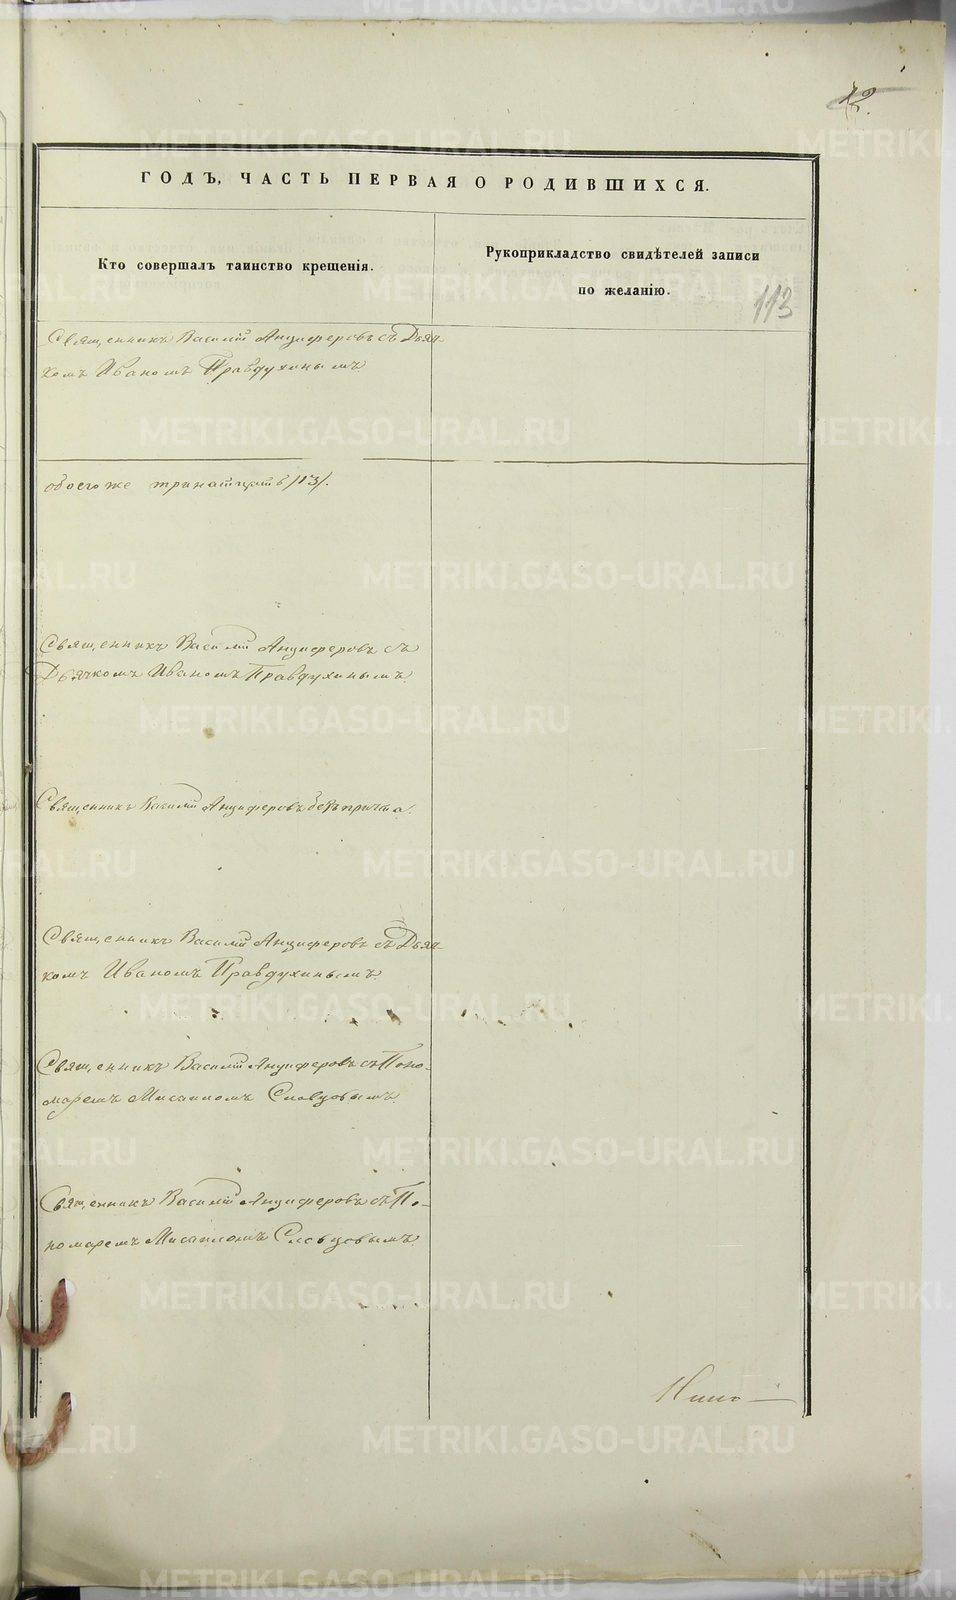 12.
ГОДЪ, ЧАСТЬ ПЕРВАЯ О РОДИВШИХСЯ.
Кто совершалъ таинство крещенія.
Рукоприкладство свидѣтелей записи
по желанію.
113
Священникъ Василій Анциферовъ съ Дьяч-
комъ Иваномъ Правдухинымъ
обоего же тринатцать /13/.
Священникъ Василій Анциферовъ съ
Дьячкомъ Иваномъ Правдухинымъ.
Священникъ Василій Анциферовъ безъ причта.
Священникъ Василій Анциферовъ съ Дьяч-
комъ Иваномъ Правдухинымъ.
Священникъ Василій Анциферовъ съ Поно-
маремъ Мисаиломъ Словцовымъ.
Священникъ Василій Анциферовъ съ По-
номаремъ Мисаиломъ Словцовымъ.
METRIKI.GASO-URAL.RU